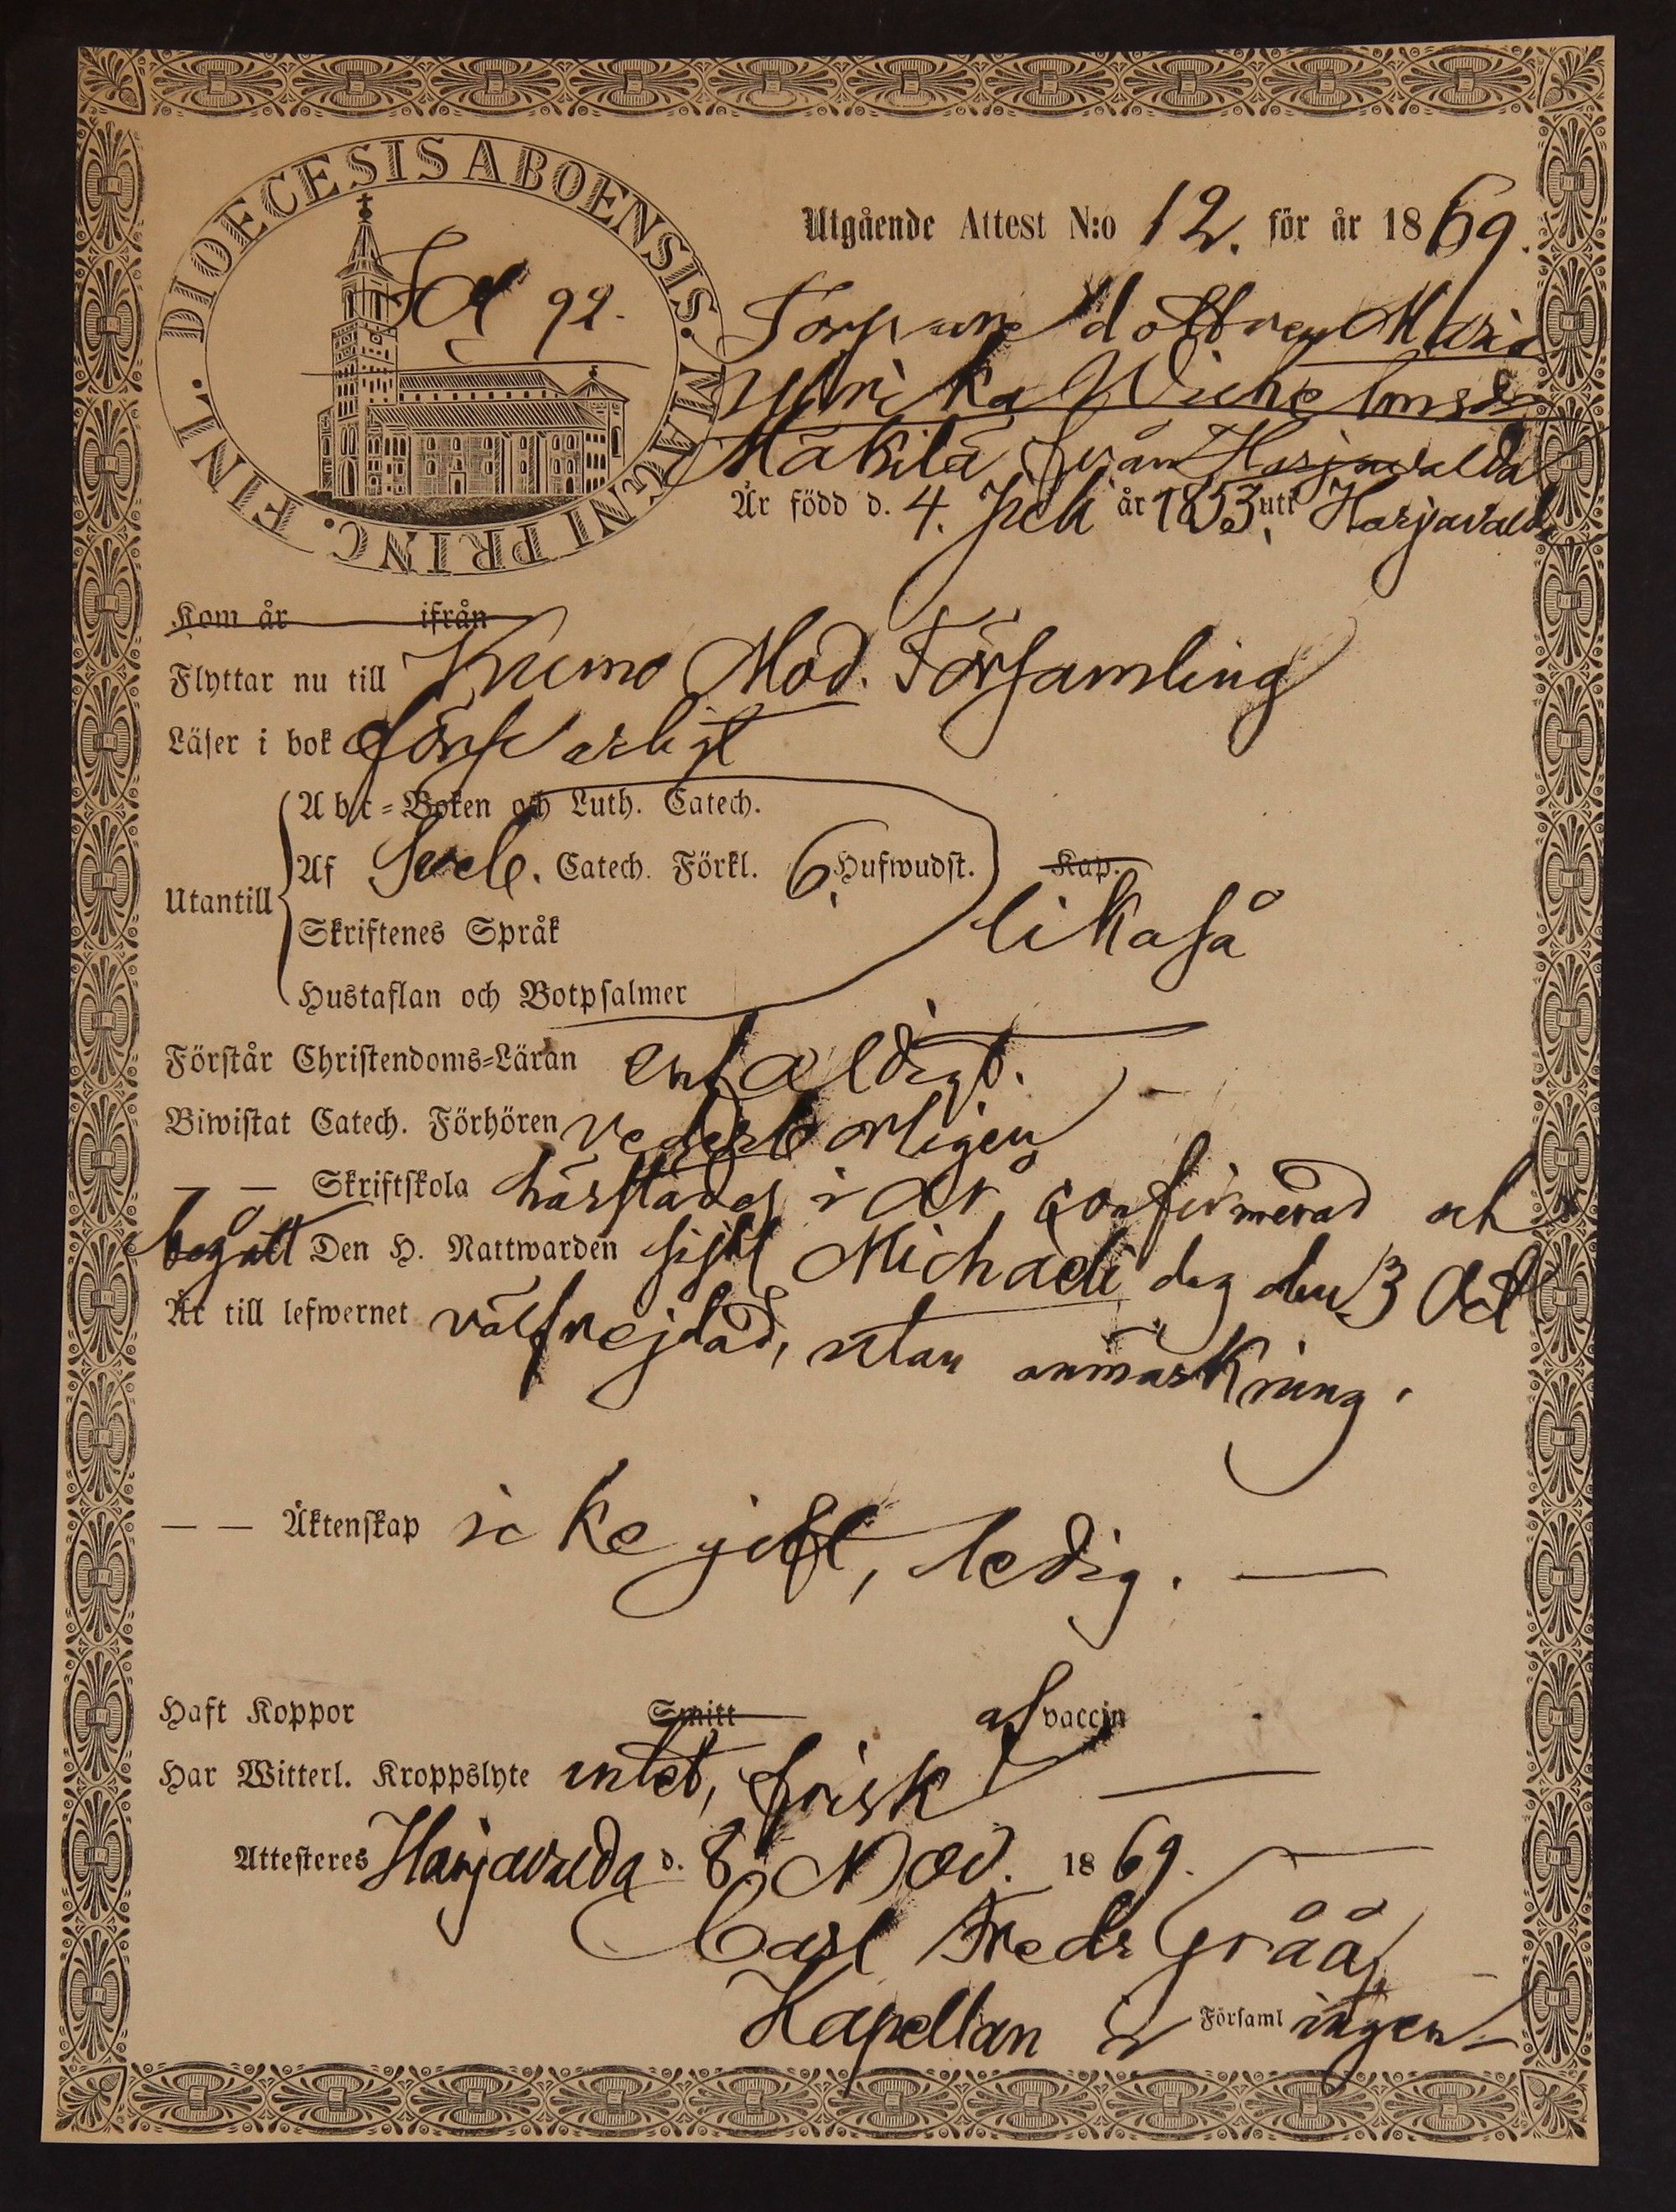 DIOECESIS ABOENSIS. MAGNI PRINC. FINL.
Fol 92.
Utgående Attest N:o 12. för år 1869.
Torpare dottren Maria
Ulrika Wilhelmsdr
Mäkilä från Harjavalda
Är född d. 4. Juli år 1853. uti Harjavalda
Kom år ifrån
Flyttar nu till Kumo Mod. Församling
Läser i bok försvarligt
Abc-Boken och Luth. Catech.
Af Sveb. Catech. Förkl. 6. Hufwudst. Kap.
Utantill
Skriftenes Språk likaså
Hustaflan och Botpsalmer
Förstår Christendoms-Läran enfaldigt.
Biwistat Catech. Förhören vederbörligen
— — Skriftskola härstädes i år, confirmerad och
begått Den H. Nattwarden sist Michaeli dag den 3 Oct
Är till lefwernet välfrejdad, utan anmärkning.
— — Äktenskap icke gift, ledig. —
Haft Koppor Smitt af vaccin
Har Witterl. Kroppslyte intet, frisk —
Attesteres Harjavalda d. 8 Nov. 1869.
Carl Fredr Gråå
Kapellan i Församlingen